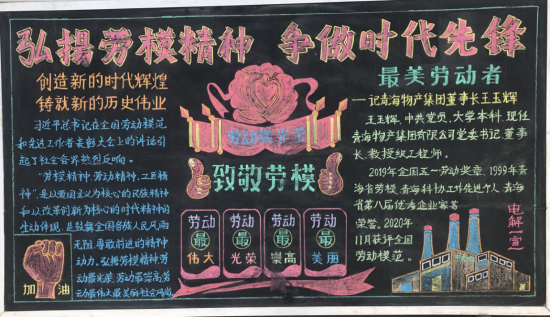 弘揚劳模精神 争做时代先锋
创造新的时代辉煌
铸就新的历史伟业
习近平总书记在全国劳动模范
和先进工作者表彰大会上的讲话引
起了社会各界热烈反响。
"劳模精神,劳动精神,工匠精
神",是以爱国主义为核心的民族精神
和以改革创新为核心的时代精神的
生动体现,是鼓舞全国各族人民风雨
无阻、勇敢前进的精神
动力。弘扬劳模精神劳
动最光荣、劳动最崇高劳
动最伟大最美丽社会风尚
加油
劳动最光荣
致敬劳模
劳动最伟大
劳动最光荣
劳动最崇高
劳动最美丽
最美劳动者
——记青海物产集团董事长王玉辉
王玉辉,中共党员,大学本科,现任
青海物产集团有限公司党委书记、董事
长、教授级工程师。
2019年全国五一劳动奖章、1999年青
海省劳模、青海科协工作先进个人、青海
省第八届优秀企业家等
荣誉。2020年
11月获评全国
劳动模范。
电解一宣